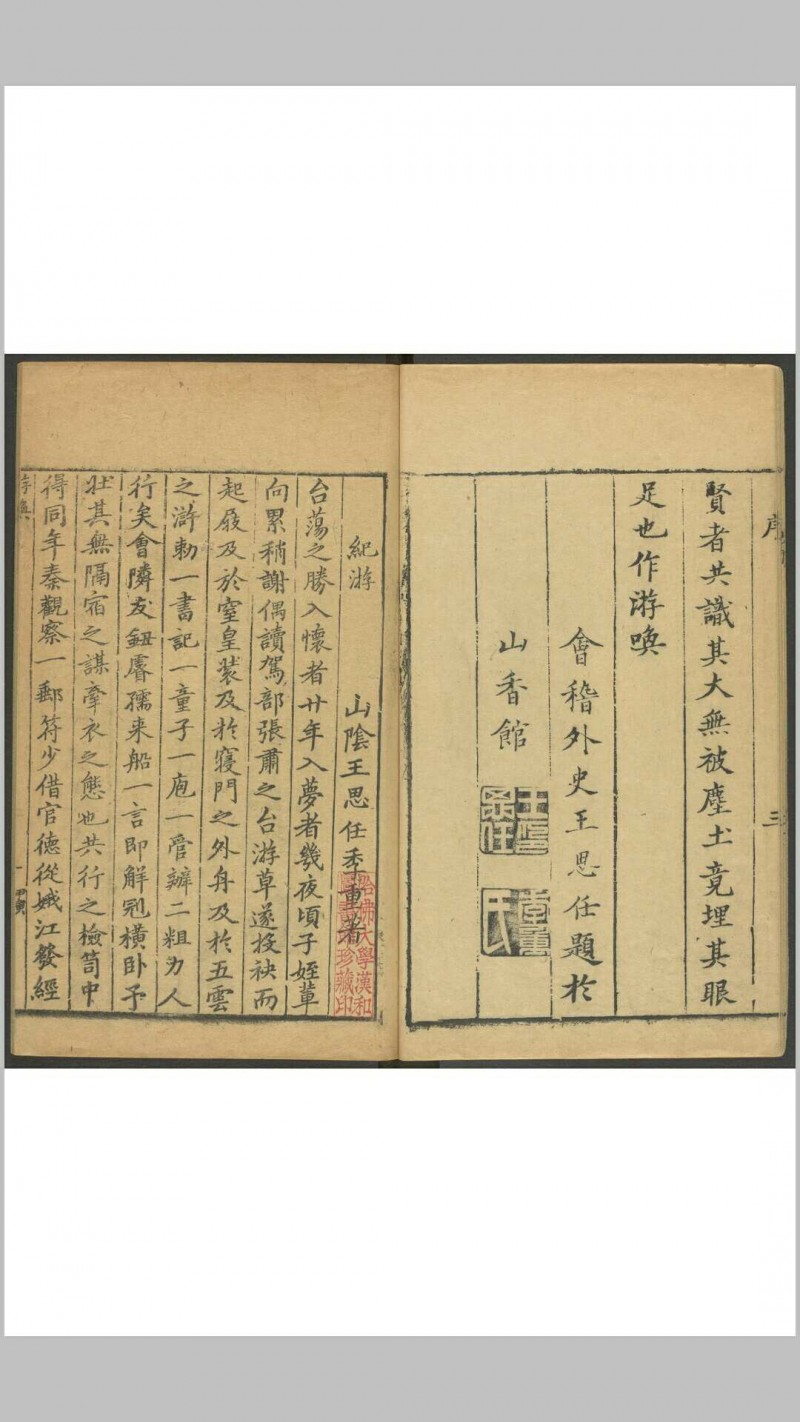 序
三
賢者共識其大無被塵土竟埋其眼
足也作游喚
會稽外史王思任題於
山香館
紀游
山陰王思任季重著
哈佛大學漢和
圖書館珍藏印
台蕩之勝入懷者廿年入夢者幾夜頃子姪輩
向累稍謝偶讀駕部張肅之台游草遂投袂而
起屐及於窒皇裝及於寢門之外舟及於五雲
之滸勅一書記一童子一庖一管辦二粗力人
行矣會隣友鈕睿孺来船一言即解剏橫卧予
壯其無隔宿之謀牽衣之態也共行之檢笥中
得同年秦觀察一郵符少借官德從娥江發經
游喚
一